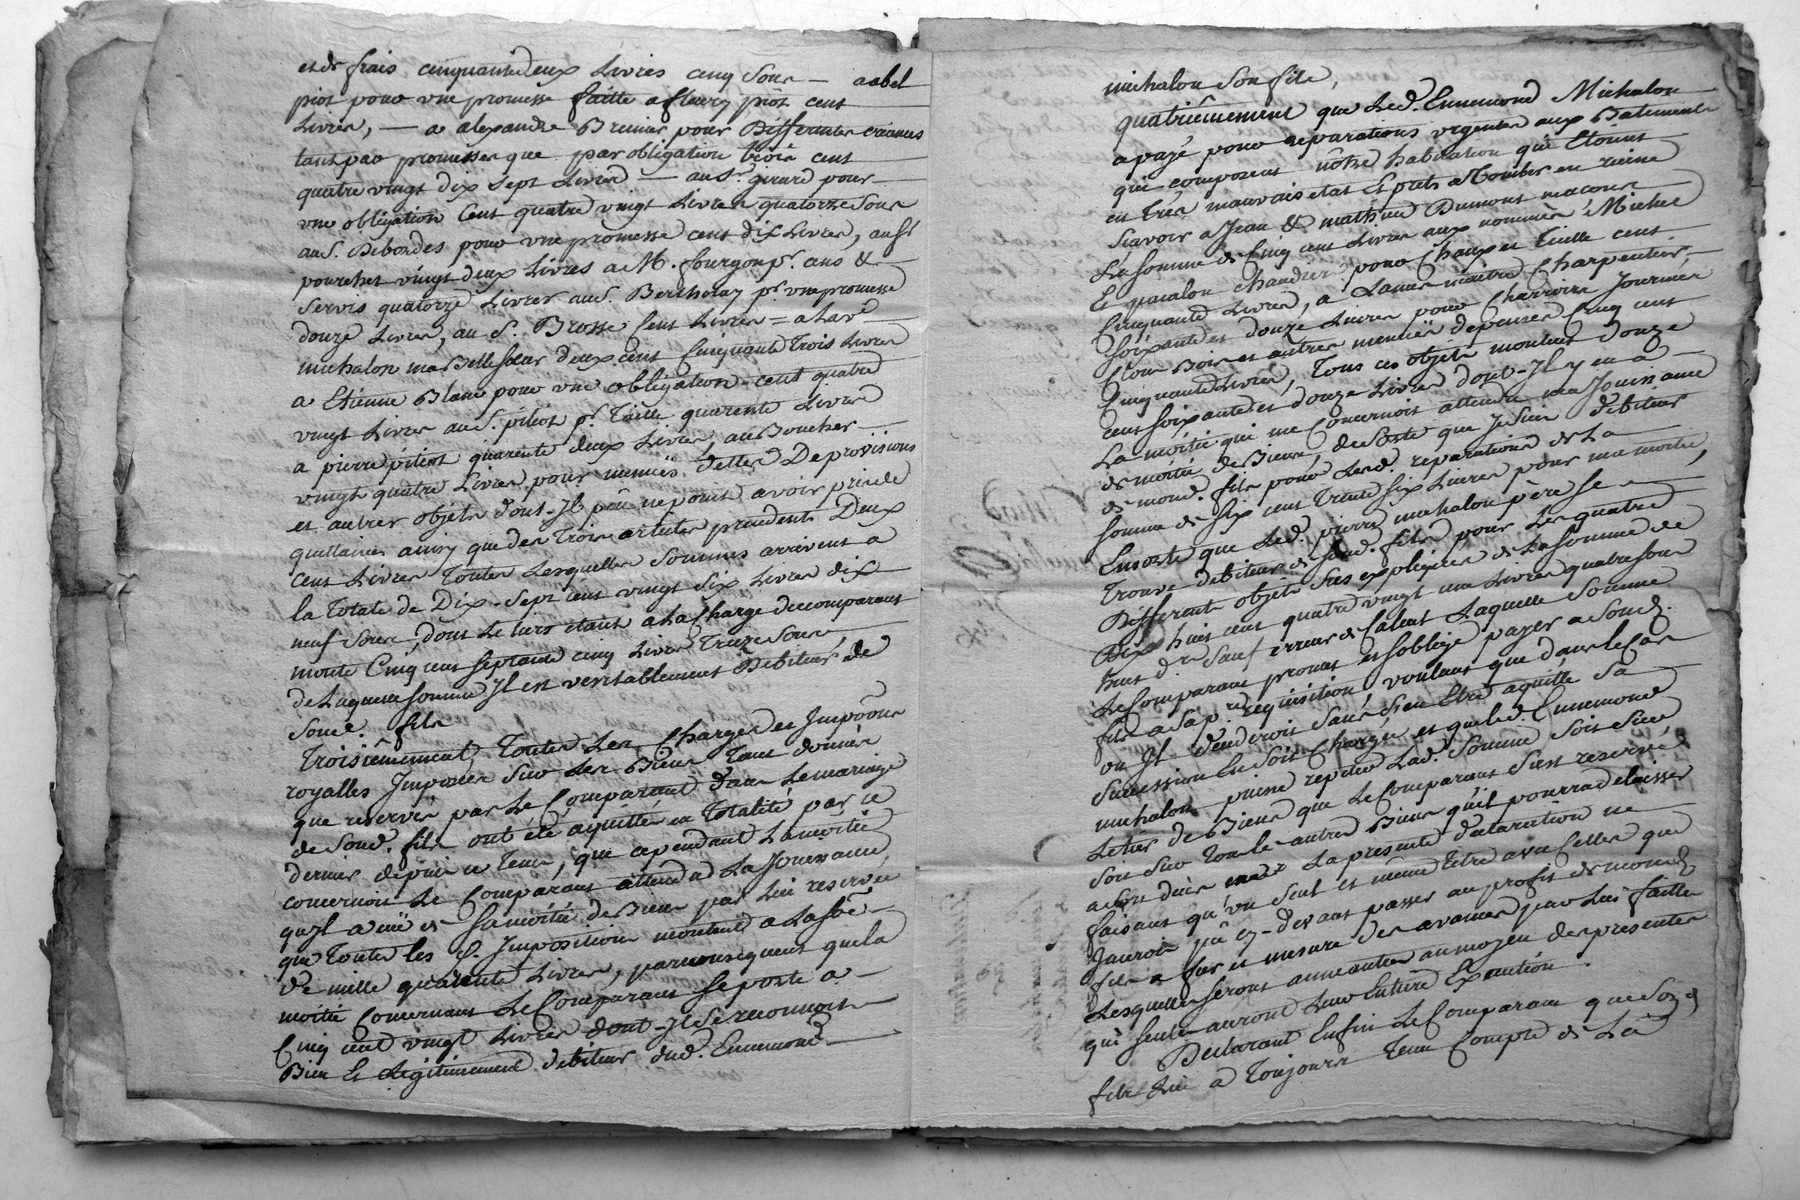 et de frais cinquante deux Livres cinq Sous — a abel
piot pour une promesse faitte a fleury piot cent
Livres, — a alexandre Brenier pour Differantes créances
tant par promesses que par obligation trois cent
quatre vingt dix Sept Livres — au Sr. girard pour
une obligation Cent quatre vingt Livres quatorze Sous
au S. Debordes pour une promesse cent dix Livres, au Sr
pourchet vingt deux Livres a M. fourgon pr. cens &
Servis quatorze Livres au S. Bertholay pr. une promesse
douze Livres, au S. Brosse Cent Livres = a La ve
michalon ma Belle Sœur deux cent Cinquante Trois Livres
a Etienne Blanc pour une obligation cent quatre
vingt Livres au S. pitiot pr. Taille quarente Livres
a pierre pitiot quarente deux Livres, au Boucher
vingt quatre Livres pour menues dettes De provisions
et autres objets dont Il peu ne point avoir pris de
quittances ainsy que des Trois articles precedents Deux
cent Livres Toutes Lesquelles Sommes arrivent a
la Totale de Dix-Sept cent vingt Six Livres dix
neuf Sous, dont Le tiers etant a La Charge du comparant
monte Cinq cent Septante cinq Livres Treize Sous,
de Laquelle Somme Il est veritablement Debiteur de
Sond. fils
Troisiemement Toutes Les Charges des Impôons
royalles Imposées Sur Les Biens Tant donnés
que reservés par Le Comparant dans Le mariage
de Sond. fils ont été aquittés en Totalité par ce
dernier depuis ce Tems, que cependant La moitié
concernoit Le Comparant attendu La Jouissance
qu'il a eüe de Sa moitié de Biens par Lui reservée
que Toutes les d. Imposition montent a La Soe
de mille quarente Livres, par consequent que la
moitié Concernant Le Comparant Se porte a
Cinq cent vingt Livres dont Il Se reconnoit
Bien & Legitimement debiteur dud. Ennemond
michalon Son fils,
quatriêmement que Led. Ennemond Michalon
a payé pour reparations urgentes aux Batiments
qui composent nôtre habitation qui Etoient
en très mauvais etat Et prets a Tomber en ruine
Sçavoir a Jean & mathieu Dumont macons
La Somme de Cinq cent Livres aux nommés Michel
Et Chandier pour Chaux et Tuille cent
Cinquante Livres, a maitre Charpentier
Soixante et douze Livres pour Charrois Journées
Clou Bois et autres menües depenses Cinq cent
Cinquante Livres, Tous ces objets montent douze
cent Soixante et douze Livres dont Il y en a
La moitié qui me Concernoit attendu ma Jouissance
de moitié de Biens, de Sorte que Je Suis debiteur
de mond. fils pour Lesd. reparations de La
Somme de Six cent Trente Six Livres pour ma moitié,
Ensorte que Led. pierre michalon père Se
Trouve debiteur de Sond. fils pour Les quatre
Differents objets Sus expliqués de La Somme de
Dix huit cent quatre vingt une Livres quatre Sous
huit d.rs Sauf erreur de Calcul Laquelle Somme
Le Comparant promet et S'oblige payer a Sond.
fils a Sa pre. requisition, voulant que dans le Cas
ou Il viendroit Sans S'en Etre aquitté Sa
Succession En Soit Chargée et que led. Ennemond
michalon puisse repeter Lad. Somme Soit Sur
Le tiers de Biens que Le Comparant S'est reservé
Soit Sur Tous Les autres Biens qu'il pourra delaisser
a Son décès La presente declaration ne
faisant qu'un Seul et même Titre avec Celles que
J'aurois pû cy-devant passer au profit de mond.
fils a fur et mesure des avances par Lui faittes
Lesquelles Seront anneanties au moyen des presentes
qui Seules auront Leur Entiere Execution.
Declarant Enfin Le Comparant que Sond.
fils Lui a Toujours Tenu Compte de La